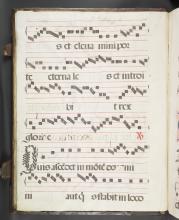 s et eleua mini por
te eterna le s et introi
bi t rex
glorie
Quis ascēdet in mōtē do mi
ni aut q̄ s stabit in loco